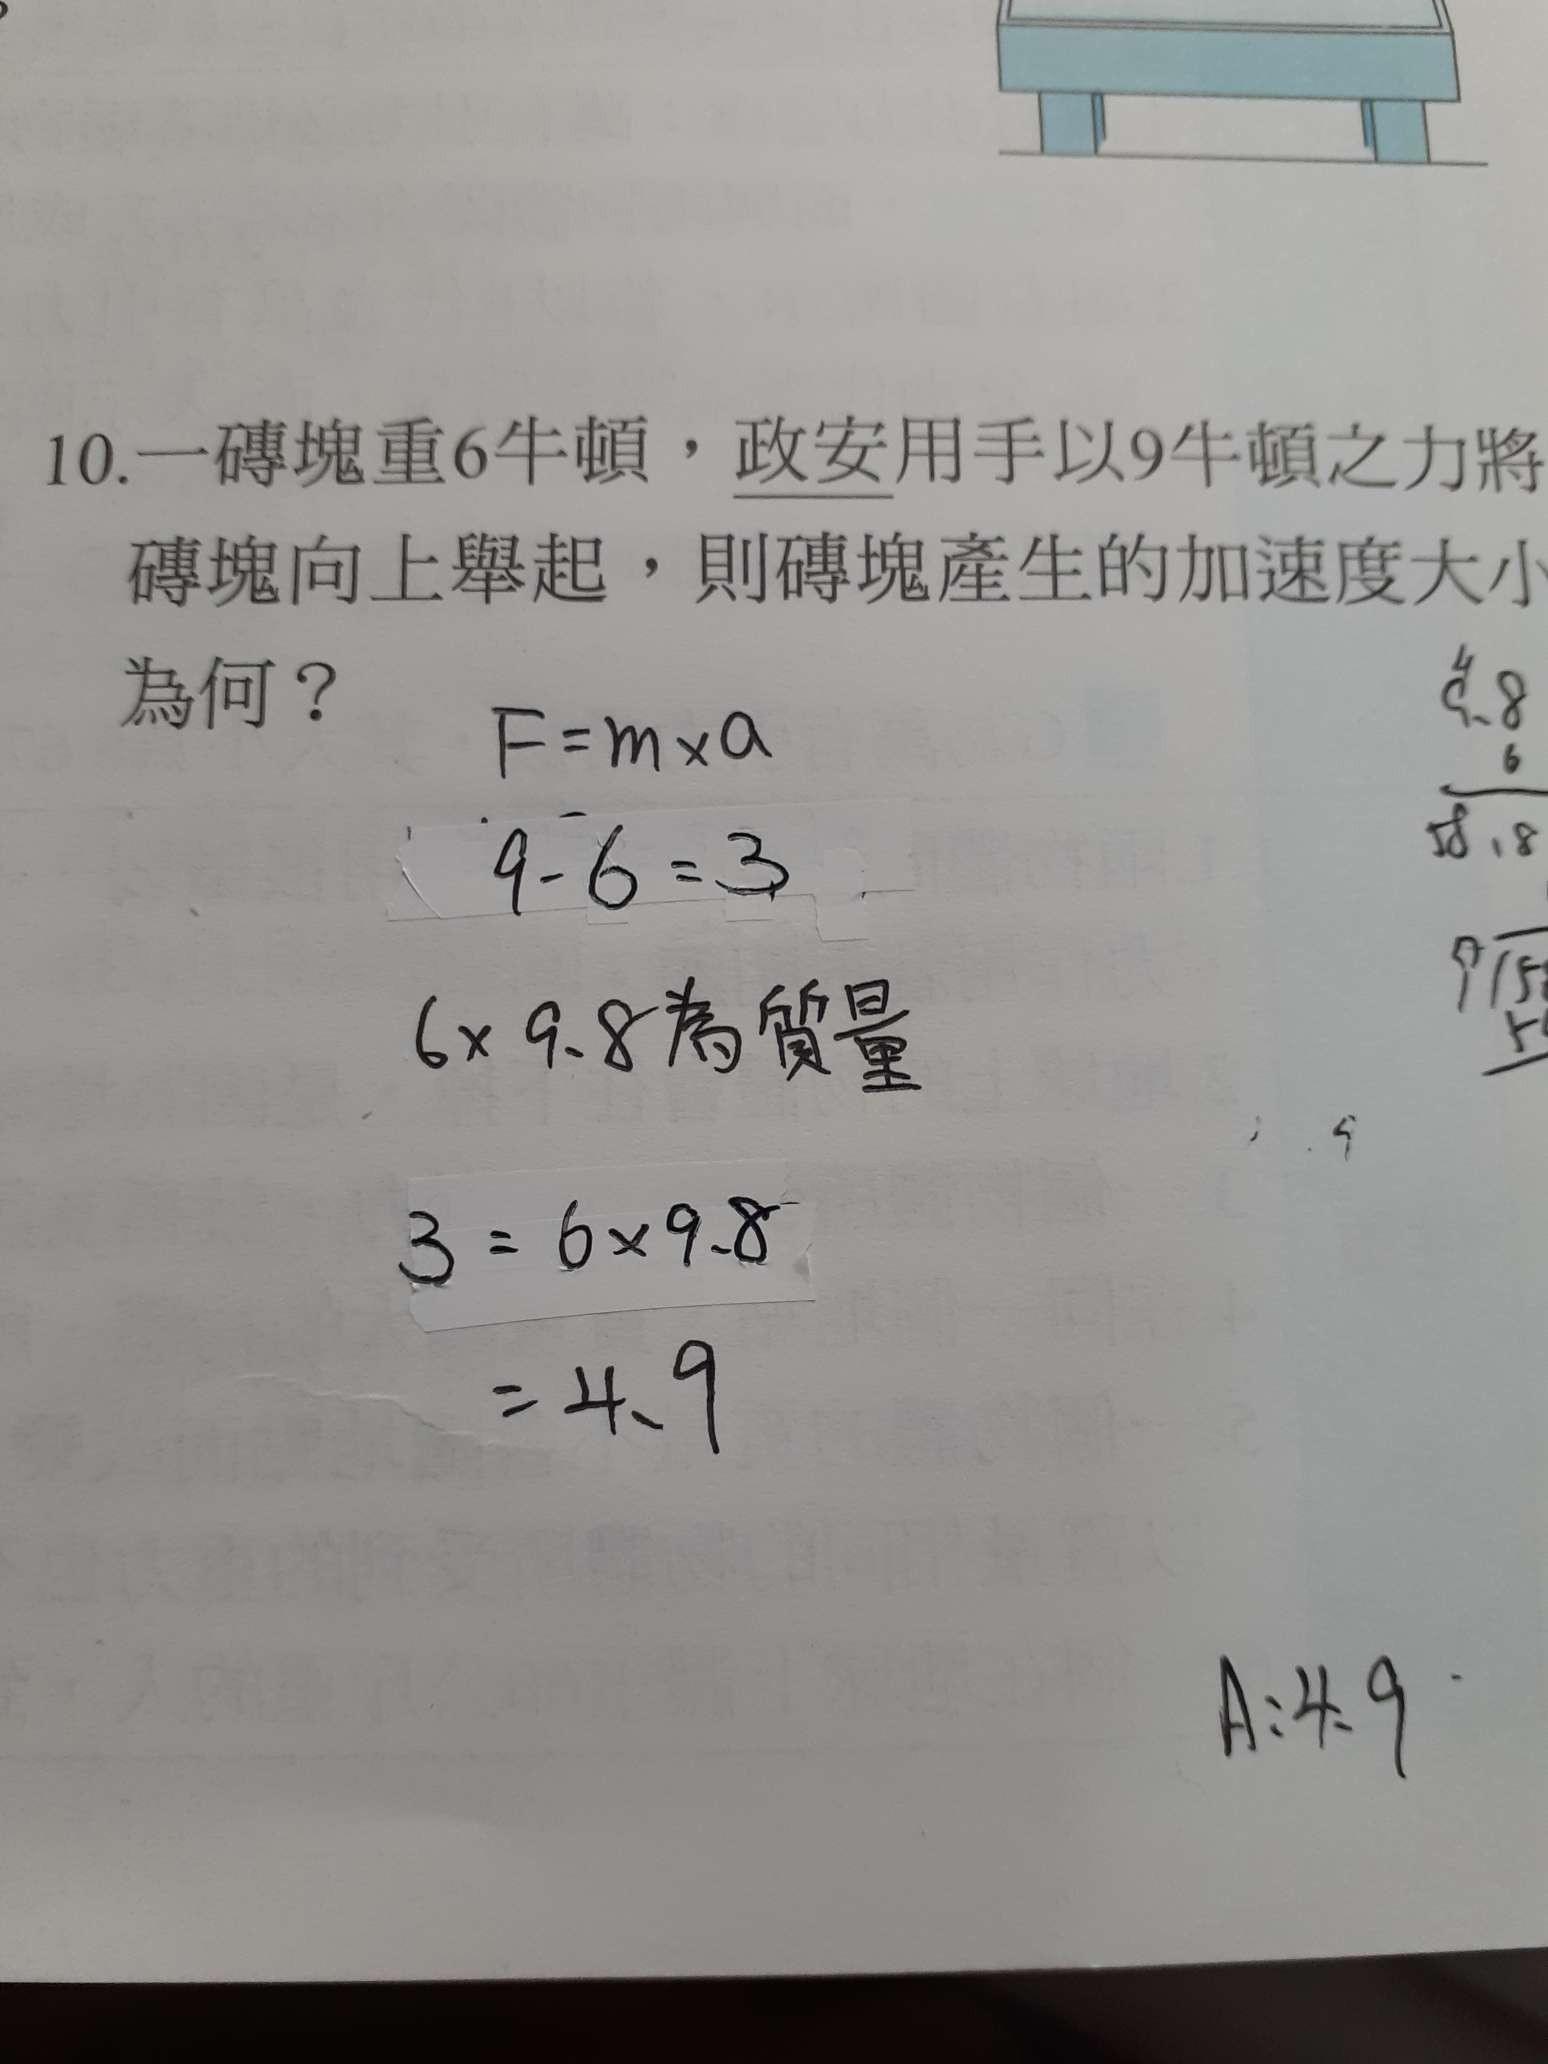 10.一磚塊重6牛頓，政安用手以9牛頓之力將
磚塊向上舉起，則磚塊產生的加速度大小
為何？
F=m×a
9-6=3
6×9.8為質量
3=6×9.8
=4.9
9.8
6
58.8
A:4.9